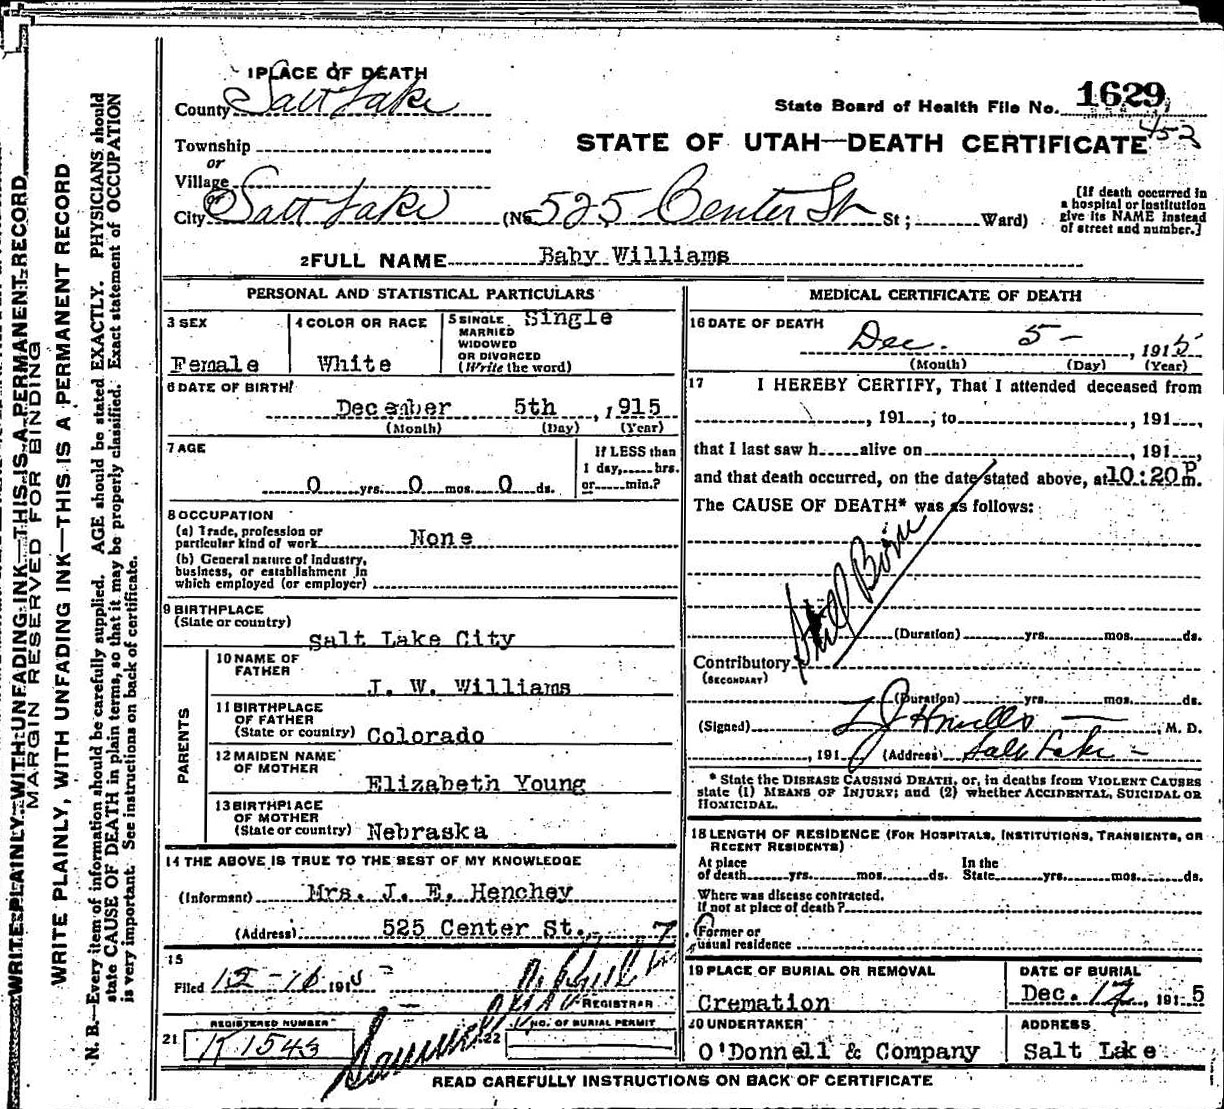 1 PLACE OF DEATH
County Salt Lake
State Board of Health File No. 1629
452
Township
or
Village
or
STATE OF UTAH—DEATH CERTIFICATE
City Salt Lake (No 525 Center St St; Ward)
[If death occurred in
a hospital or institution
give its NAME instead
of street and number.]
2 FULL NAME Baby Williams
PERSONAL AND STATISTICAL PARTICULARS
3 SEX
Female
4 COLOR OR RACE
White
5 SINGLE
MARRIED
WIDOWED
OR DIVORCED
(Write the word)
Single
6 DATE OF BIRTH
December 5th, 1915
(Month) (Day) (Year)
7 AGE
0 yrs. 0 mos. 0 ds.
If LESS than
1 day, hrs.
or min.?
8 OCCUPATION
(a) Trade, profession or
particular kind of work None
(b) General nature of industry,
business, or establishment in
which employed (or employer)
9 BIRTHPLACE
(State or country)
Salt Lake City
PARENTS
10 NAME OF
FATHER
J. W. Williams
11 BIRTHPLACE
OF FATHER
(State or country) Colorado
12 MAIDEN NAME
OF MOTHER
Elizabeth Young
13 BIRTHPLACE
OF MOTHER
(State or country) Nebraska
14 THE ABOVE IS TRUE TO THE BEST OF MY KNOWLEDGE
(Informant) Mrs. J. E. Henchey
(Address) 525 Center St.
15
Filed 12-16 1915
REGISTRAR
21 REGISTERED NUMBER
K1543
22 NO. OF BURIAL PERMIT
MEDICAL CERTIFICATE OF DEATH
16 DATE OF DEATH
Dec. 5 - , 1915
(Month) (Day) (Year)
17 I HEREBY CERTIFY, That I attended deceased from
, 191 , to , 191 ,
that I last saw h alive on , 191 ,
and that death occurred, on the date stated above, at 10:20 P m.
The CAUSE OF DEATH* was as follows:
Still Born
(Duration) yrs. mos. ds.
Contributory
(SECONDARY)
(Duration) yrs. mos. ds.
(Signed) , M. D.
, 191 (Address) Salt Lake -
* State the DISEASE CAUSING DEATH, or, in deaths from VIOLENT CAUSES
state (1) MEANS OF INJURY; and (2) whether ACCIDENTAL, SUICIDAL OR
HOMICIDAL.
18 LENGTH OF RESIDENCE (FOR HOSPITALS, INSTITUTIONS, TRANSIENTS, OR
RECENT RESIDENTS)
At place
of death yrs. mos. ds.
In the
State yrs. mos. ds.
Where was disease contracted.
if not at place of death?
Former or
usual residence
19 PLACE OF BURIAL OR REMOVAL
Cremation
DATE OF BURIAL
Dec. 17, 1915
20 UNDERTAKER
O'Donnell & Company
ADDRESS
Salt Lake
READ CAREFULLY INSTRUCTIONS ON BACK OF CERTIFICATE
WRITE PLAINLY, WITH UNFADING INK—THIS IS A PERMANENT RECORD
MARGIN RESERVED FOR BINDING
WRITE PLAINLY, WITH UNFADING INK—THIS IS A PERMANENT RECORD
N. B.—Every item of information should be carefully supplied. AGE should be stated EXACTLY. PHYSICIANS should
state CAUSE OF DEATH in plain terms, so that it may be properly classified. Exact statement of OCCUPATION
is very important. See instructions on back of certificate.